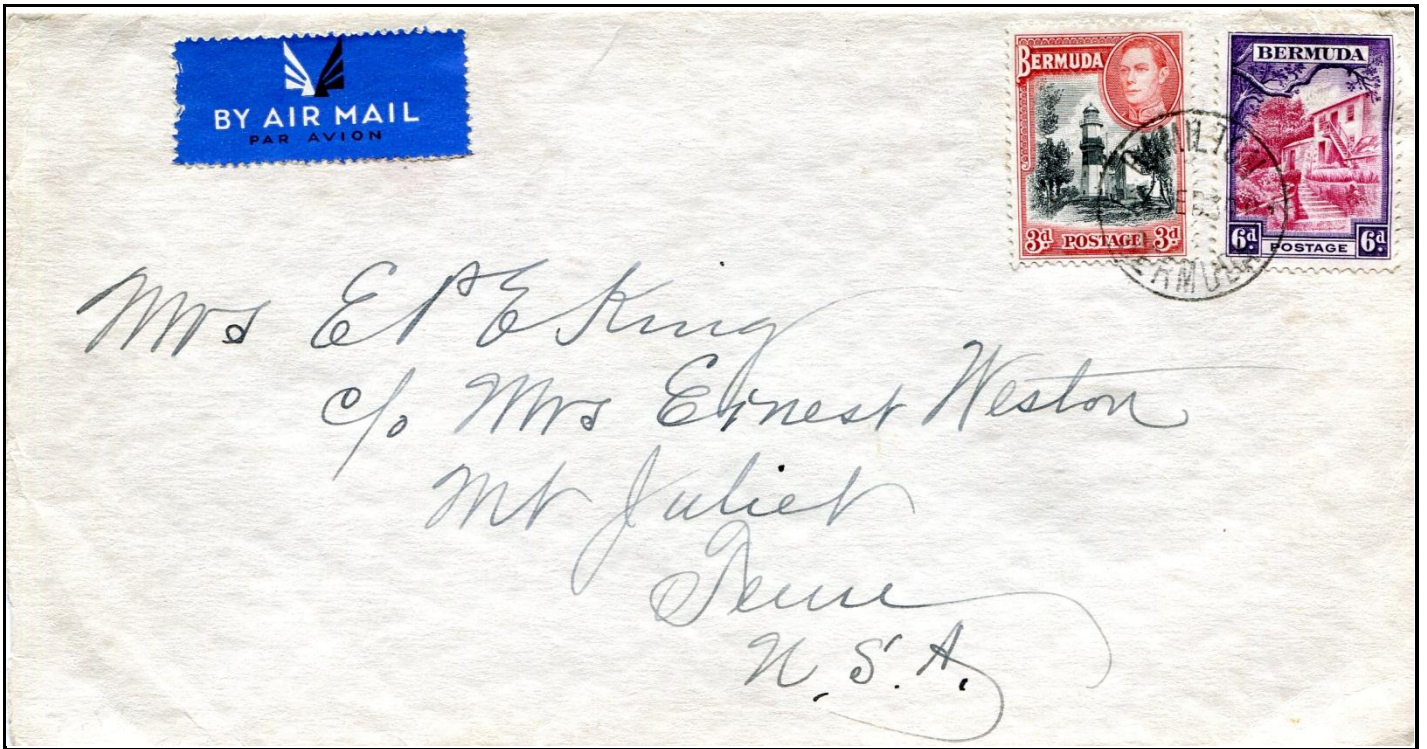 BY AIR MAIL
PAR AVION
BERMUDA
3d POSTAGE 3d
BERMUDA
6d POSTAGE 6d
BERMUDA
Mrs E P E King
c/o Mrs Ernest Weston
Mt Juliet
Tenn
U.S.A.